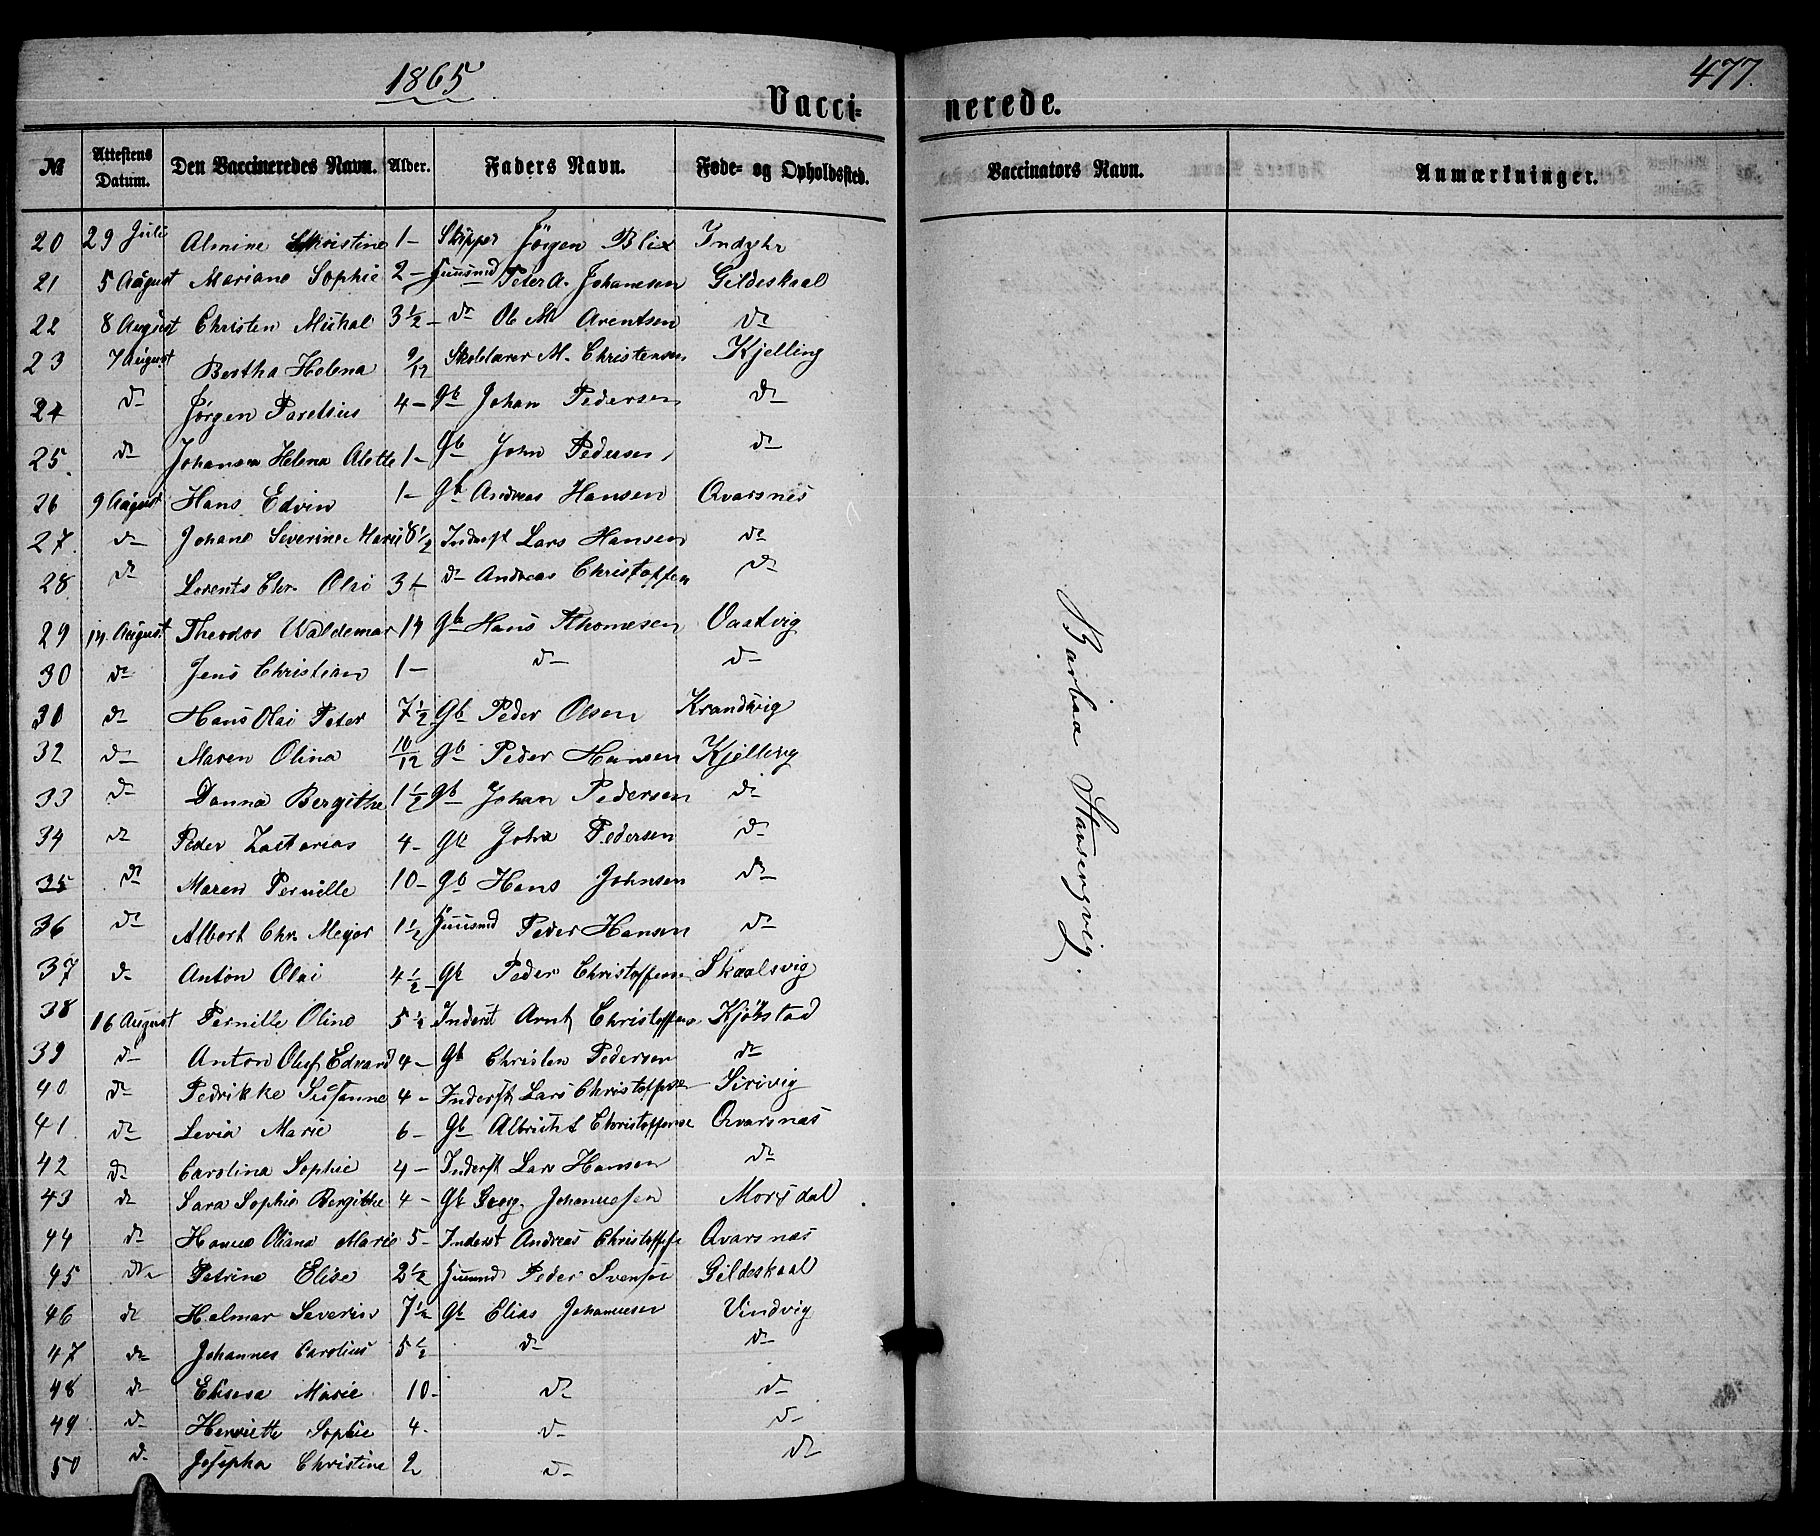 1865
477.
Vacci-
nerede.
№ Attestens Datum. Den Vaccineredes Navn. Alder. Faders Navn. Føde- og Opholdssted. Vaccinators Navn. Anmærkninger.
20 29 Juli Almine Christine 1 - Skipper Jörgen Blix Indyhr
21 5 August Mariane Sophie 2 - Huusmd Peter A. Johansen Gildeskaal
22 8 August Christen Mikal 3 1/2 - do Ole M Arentsen do
23 7 August Bertha Helena 9/12 Skolelærer M. Christensen Kjelling
24 do Jörgen Parelius 4 - Gb Johan Pedersen do
25. do Johanna Helena Alette 1 - Gb John Pedersen do
26 9 August Hans Edvin 1 - Gb Andreas Hansen Qvarsnes
27. do Johane Severine Marie 8 1/2 Inderst Lars Hansen do
28 do Lorents Chr. Olai 3 - do Andreas Christoffersen do
29 14 August Theodor Waldemar 14 Gb Hans Thomesen Vaatvig
30 do Jens Christian 1 - do do
30 do Hans Olai Peter 7 1/2 Gb Peder Olsen Krandvig
32 do Maren Olina 10/12 Gb Peder Hansen Kjelling
33 do Danna Bergithe 1 1/2 Gb Johan Pedersen do
34 do Peder Zacharias 4 - Gb John Pedersen do
35 do Maren Pernille 10 - Gb Hans Johnsen do
36 do Albert Chr. Meyer 1 1/2 Huusmd Peder Hansen do
37 do Anton Olai 4 1/2 - Gb Peder Christoffersen Skaalsvig
38 16 August Pernille Oline 5 1/2 Inderst Arnt Christoffersen Kjöbstad
39 do Anton Oluf Edvard 4 - Gb Christen Pedersen do
40 do Pedrikke Susanne 4 - Inderst Lars Christoffersen Sörvig
41. do Levia Marie 6 - Gb Albricht Christoffersen Qvarsnas
42 do Carolina Sophie 4 - Inderst Lars Hansen do
43 do Sara Sophie Bergithe 4 - Gb Georg Johannesen Morsdal
44 do Hanna Oliana Marie 5 - Inderst Andreas Christoffersen Qvarsnas
45 do Petrine Elise 2 1/2 Huusmd Peder Svensen Gildeskaal
46 do Helmer Severin 7 1/2 Gb Elias Johannesen Vindvig
47 do Johannes Carolius 5 1/2 do do
48 do Marie 10 - do do
49 do Henriette Sophie 4 - do do
50 do Josepha Christine 2 do do
Barbra